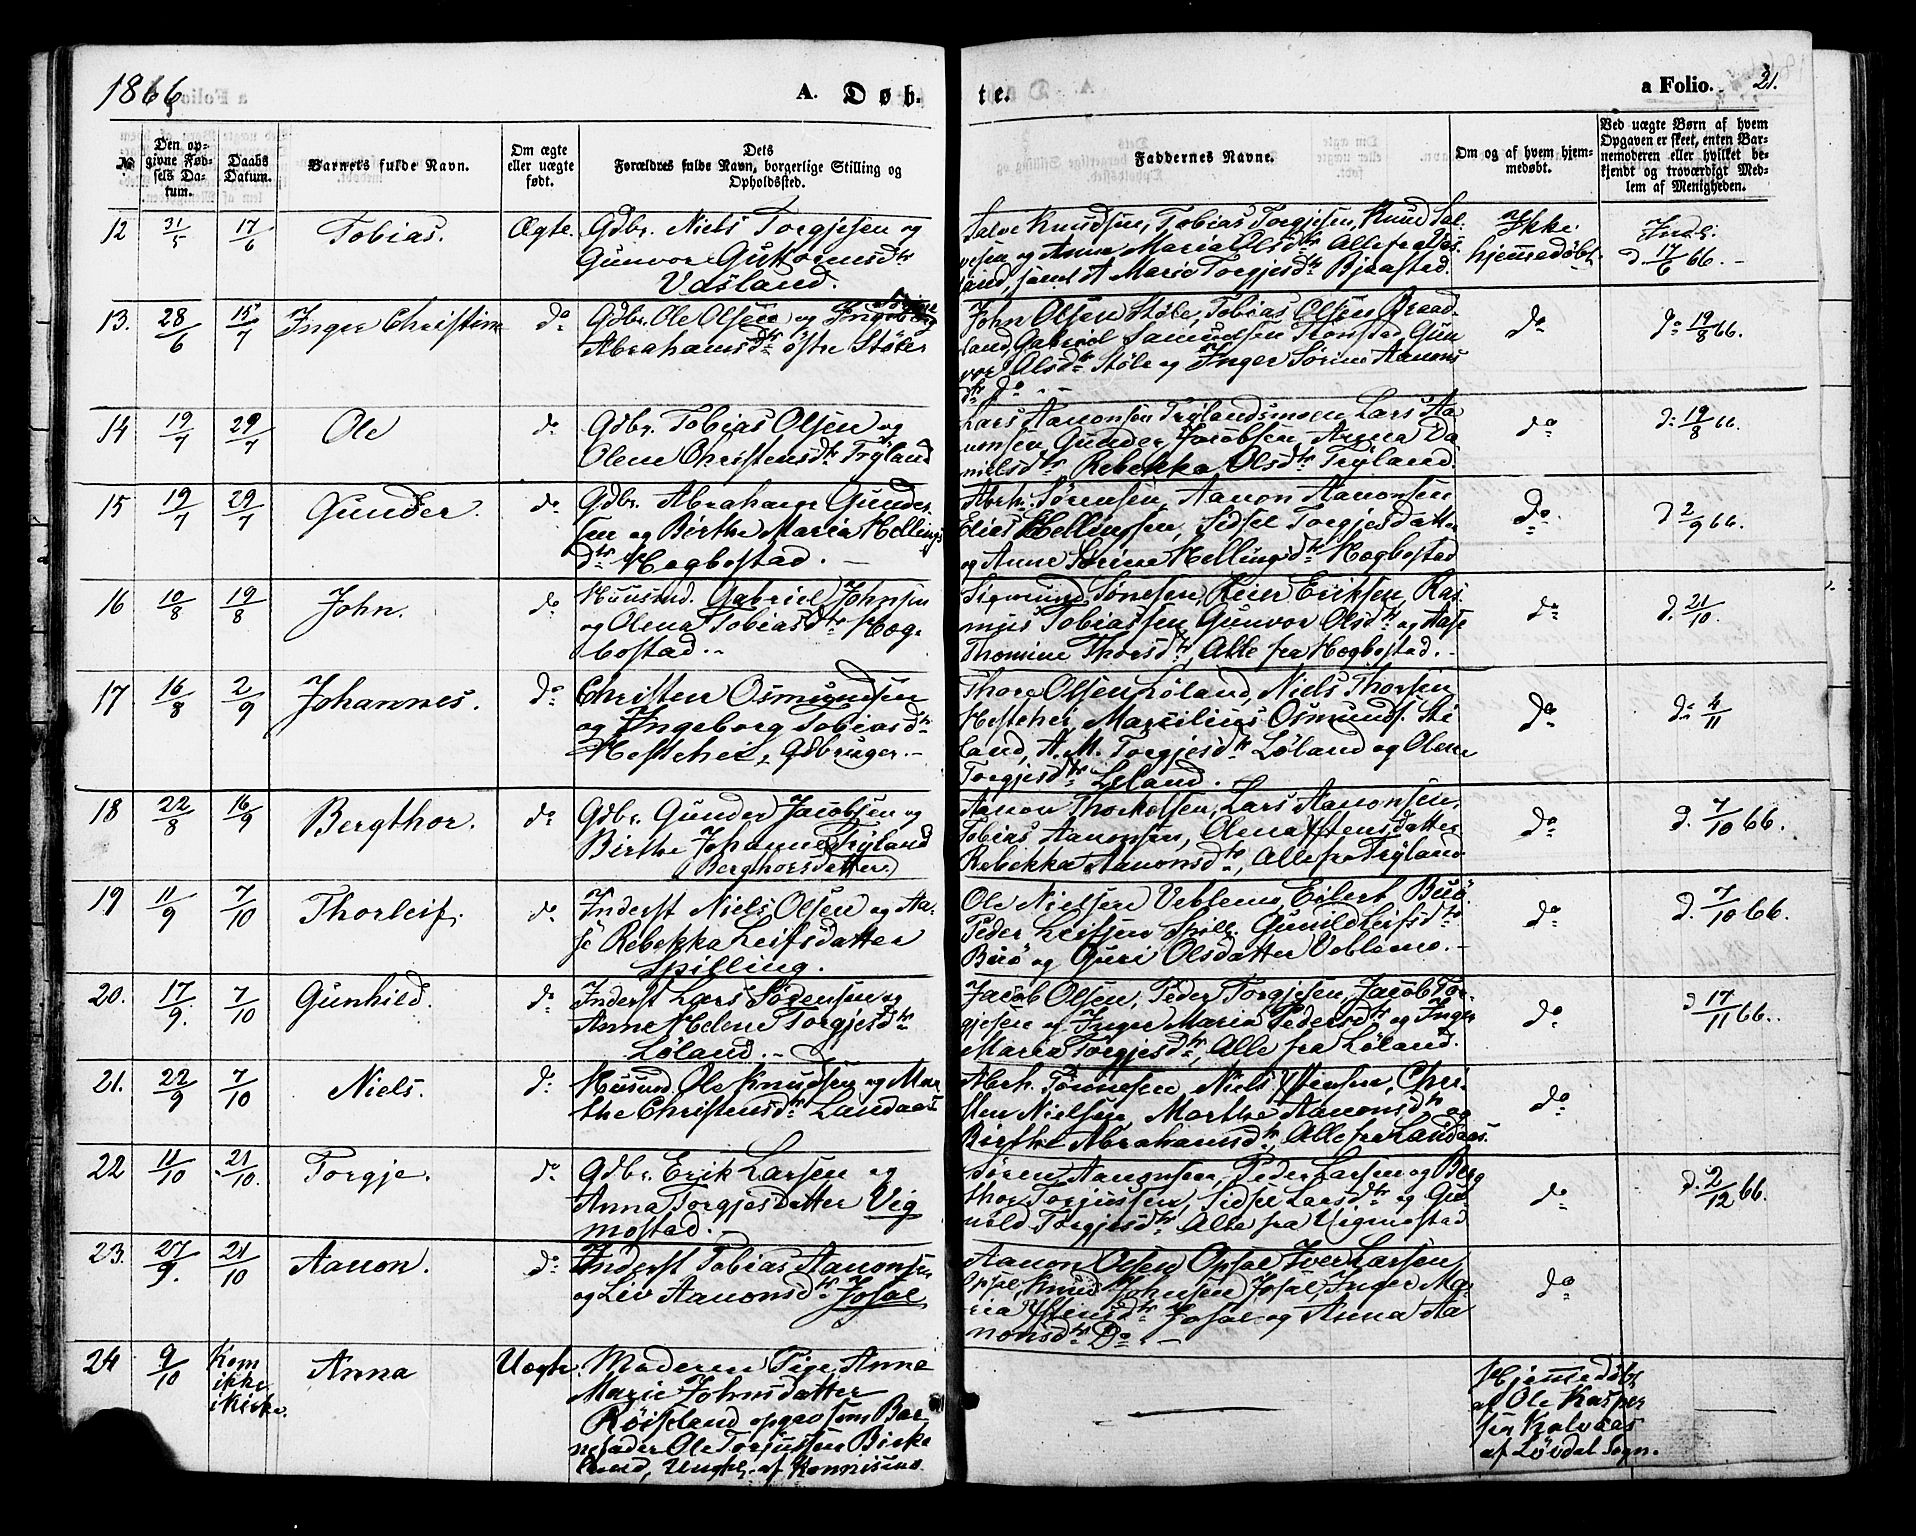 1866
A. Døb.
te.
a Folio. 21.
№
Den op-
givne Fød-
sels Da-
tum.
Daabs
Datum.
Barnets fulde Navn.
Om ægte
eller uægte
født.
Dets
Forældres fulde Navn, borgerlige Stilling og
Opholdssted.
Faddernes Navne.
Om og af hvem hjem-
medøbt.
Ved uægte Børn af hvem
Opgaven er skeet, enten Bar-
nemoderen eller hvilket be-
kjendt og troværdigt Med-
lem af Menigheden.
12 31/5 17/6 Tobias. Ægte. Gdbr. Niels Torgjesen og
Gunvor Guttormsdtr
Vasland.
Salve Knudsen, Tobias Torgjesen, Knud Sal-
vesen og Anne Maria Olsdtr Alle fra Vas-
land, samt A Marie Torgjesdtr Bjerstad.
Ikke
hjemmedøbt.
Inds.
d. 17/6 66.
13. 28/6 15/7 Inger Christine do Gdbr. Ole Olsen og Ingeborg
Abrahamsdtr østre Støle
John Olsen Støle, Tobias Olsen Braad-
land, Gabriel Samuelsen Tronstad, Gun
vor Olsdtr Støle og Inger Sørine Aanons
dtr do
do
do 19/8 66.
14 19/7 29/7 Ole do Gdbr. Tobias Olsen og
Olene Christensdtr Tryland
Lars Aanonsen Trylandsmoen, Lars Aa-
nonsen, Gunder Jacobsen, Anna Da
nielsdtr, Rebekka Olsdtr Tryland.
do
d. 19/8 66.
15 19/7 29/7 Gunder. do Gdbr. Abraham Gunder-
sen og Birthe Maria Hellings
dtr Høgbostad.
Abrh. Sørensen, Aanon Aanonsen
Elias Hellingsen, Sidsel Torgjesdatter
og Anne Sørine Hellingsdtr Høgbostad
do
d 2/9 66.
16 10/8 19/8 John. do Huusmd. Gabriel Johnsen
og Olena Tobiasdtr Høg-
bostad.
Sigmund Sønesen, Reier Eriksen, Ras-
mus Tobiassen, Gunvor Olsdtr og Aase
Thomine Thorsdtr, Alle fra Høgbostad.
do
d. 21/10.
17 16/8 2/9 Johannes. do Christen Osmundsen
og Ingeborg Tobiasdtr
Hestehei, Gdbruger.
Thore Olsen Løland, Niels Thorsen
Hestehei, Marcilius Osmunds. Sti
land, A. M. Torgjesdtr Løland og Olene
Torgjesdtr Leland.
do
d. 4/11
18 22/8 16/9 Bergthor. do Gdbr. Gunder Jacobsen og
Birthe Johanne Tryland
(Bergthorsdatter)
Aanon Thorkelsen, Lars Aanonsen,
Tobias Aanonsen, Olena Ystensdatter
Rebekka Aanonsdtr, Alle fra Tryland
do
d. 7/10 66.
19 11/9 7/10 Thorleif. do Inderst Niels Olsen og Aa-
se Rebekka Leifsdatter
Spilling.
Ole Nielsen Veblemo, Eilert Buø
Peder Leifsen Spill. Gunild Leifsdtr
Buø og Guri Olsdatter Veblemo.
do
d. 7/10 66.
20. 17/9. 7/10 Gunhild. do Inderst Lars Sørensen og
Anne Helene Torgjesdtr
Løland.
Jacob Olsen, Peder Torgjesen, Jacob Tor-
gjesen og Inger Maria Pedersdtr og Inger
Maria Torgjesdtr, Alle fra Løland.
do
d 17/11 66.
21. 22/9 7/10 Niels. do Husmd. Ole Knudsen og Mar
the Christensdtr Landaas
Abrh. Tønnesen, Niels Ystensen, Chri-
sten Nielsen, Marthe Aanonsdtr og
Birthe Abrahamsdtr, Alle fra Landaas.
do
22 11/10 21/10. Torgje. do Gdbr. Erik Larsen og
Anna Torgjesdatter Vig
mostad.
Søren Aanonsen, Peder Larsen og Berg
thor Torjussen, Sidsel Larsdtr og Gu
nild Torgjesdtr, Alle fra Vigmostad
do
d. 2/12 66.
23. 27/9. 21/10 Aanon. do Inderst Tobias Aanonsen
og Liv Aanonsdtr Josal
Aanon Olsen Opsal, Iver Larsen
Opsal, Knud Johnsen Josal, Inger Ma-
ria Ystensdtr Josal og Anna Aa
nonsdtr Do
do
24 9/10 Kom
ikke
i Kirke.
Anna Uægte. Moderen Pige Anne
Marie Johnsdatter
Røiseland opgav som Bar-
nefader Ole Torjussen Birke
land, Ungk. af Konnismo
Hjemmedøbt
af Ole Kasper
sen Kalvaas
af Løvdal Sogn.